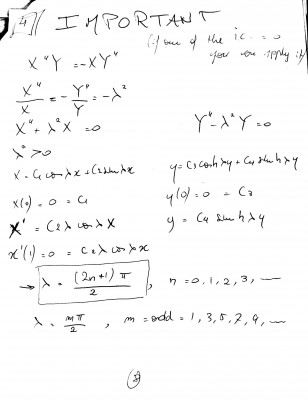 4 IMPORTANT
(if one of the ic. = 0
you can apply it)
X"Y = -XY"
X"/X = - Y"/Y = -λ²
X" + λ²X = 0
Y" - λ²Y = 0
λ² > 0
X = C₁ cos λx + C₂ sin λx
y = C₃ cosh λy + C₄ sinh λy
X(0) = 0 = C₁
y(0) = 0 = C₃
X' = C₂ λ cos λ X
y = C₄ sinh λy
x'(1) = 0 = C₂ λ cos λx
→ λ = (2n+1) π / 2 , n = 0, 1, 2, 3, ...
λ = mπ/2 , m = odd = 1, 3, 5, 7, 9, ...